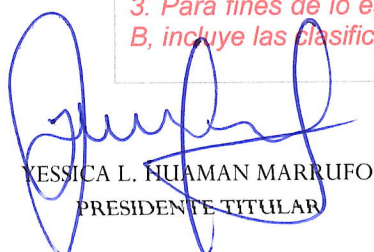 3. Para fines de lo e
B, incluye las clasific
YESSICA L. HUAMAN MARRUFO
PRESIDENTE TITULAR